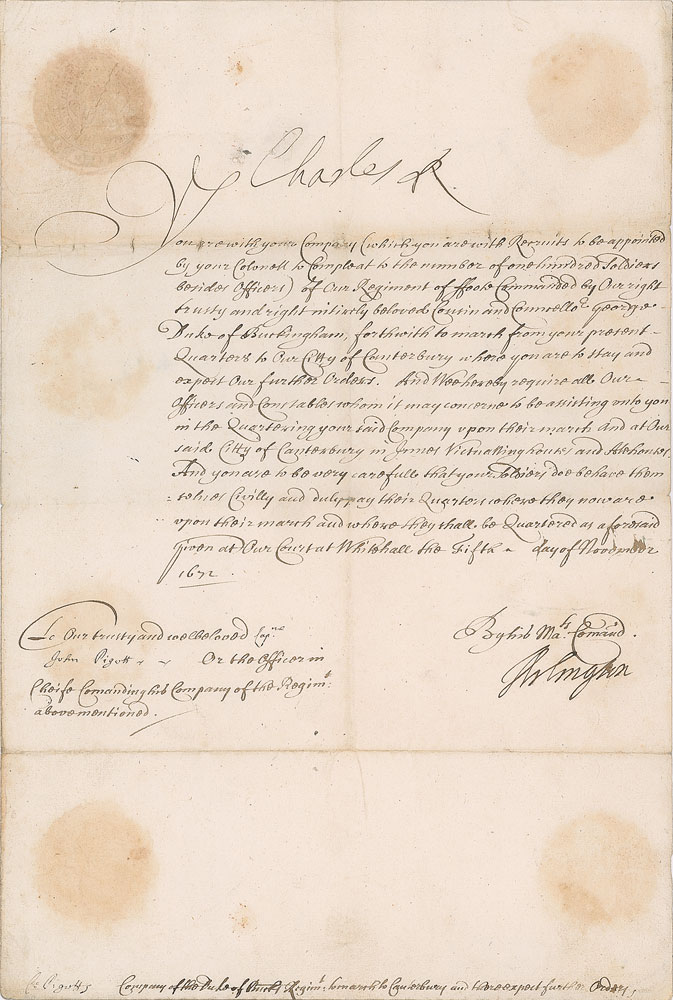 Charles R
You are with your Company (which you are with Recruits to be appointed
by your Colonell to Compleat to the number of one hundred Soldiers
besides Officers) of Our Regiment of ffoote Commanded by Our right
trusty and right intirely beloved Cousin and Councello.r George
Duke of Buckingham, forthwith to march from your present
Quarters to Our Citty of Canterbury where you are to stay and
expect Our further Orders. And Wee hereby require all Our
Officers and Constables whom it may concerne to be assisting unto you
in the Quartering your said Company vpon their march and at Our
said Citty of Canterbury in Innes Victuallinghouses and Alehouses,
And you are to be very carefull that your Soldiers doe behave them
=selves Civilly and duly pay their Quarters where they now are
vpon their march and where they shall be Quartered as aforesaid
Given at Our Court at Whitehall the Fifth day of November
1672.
To Our trusty and welbeloved
John Pigott Or the Officer in
Cheife Comanding his Company of the Regim.t
abovementioned.
By his Ma.ts Comand.
Arlington
Pigotts Company of the Duke of Bucks Regim.t to march to Canterbury and there expect further Orders,